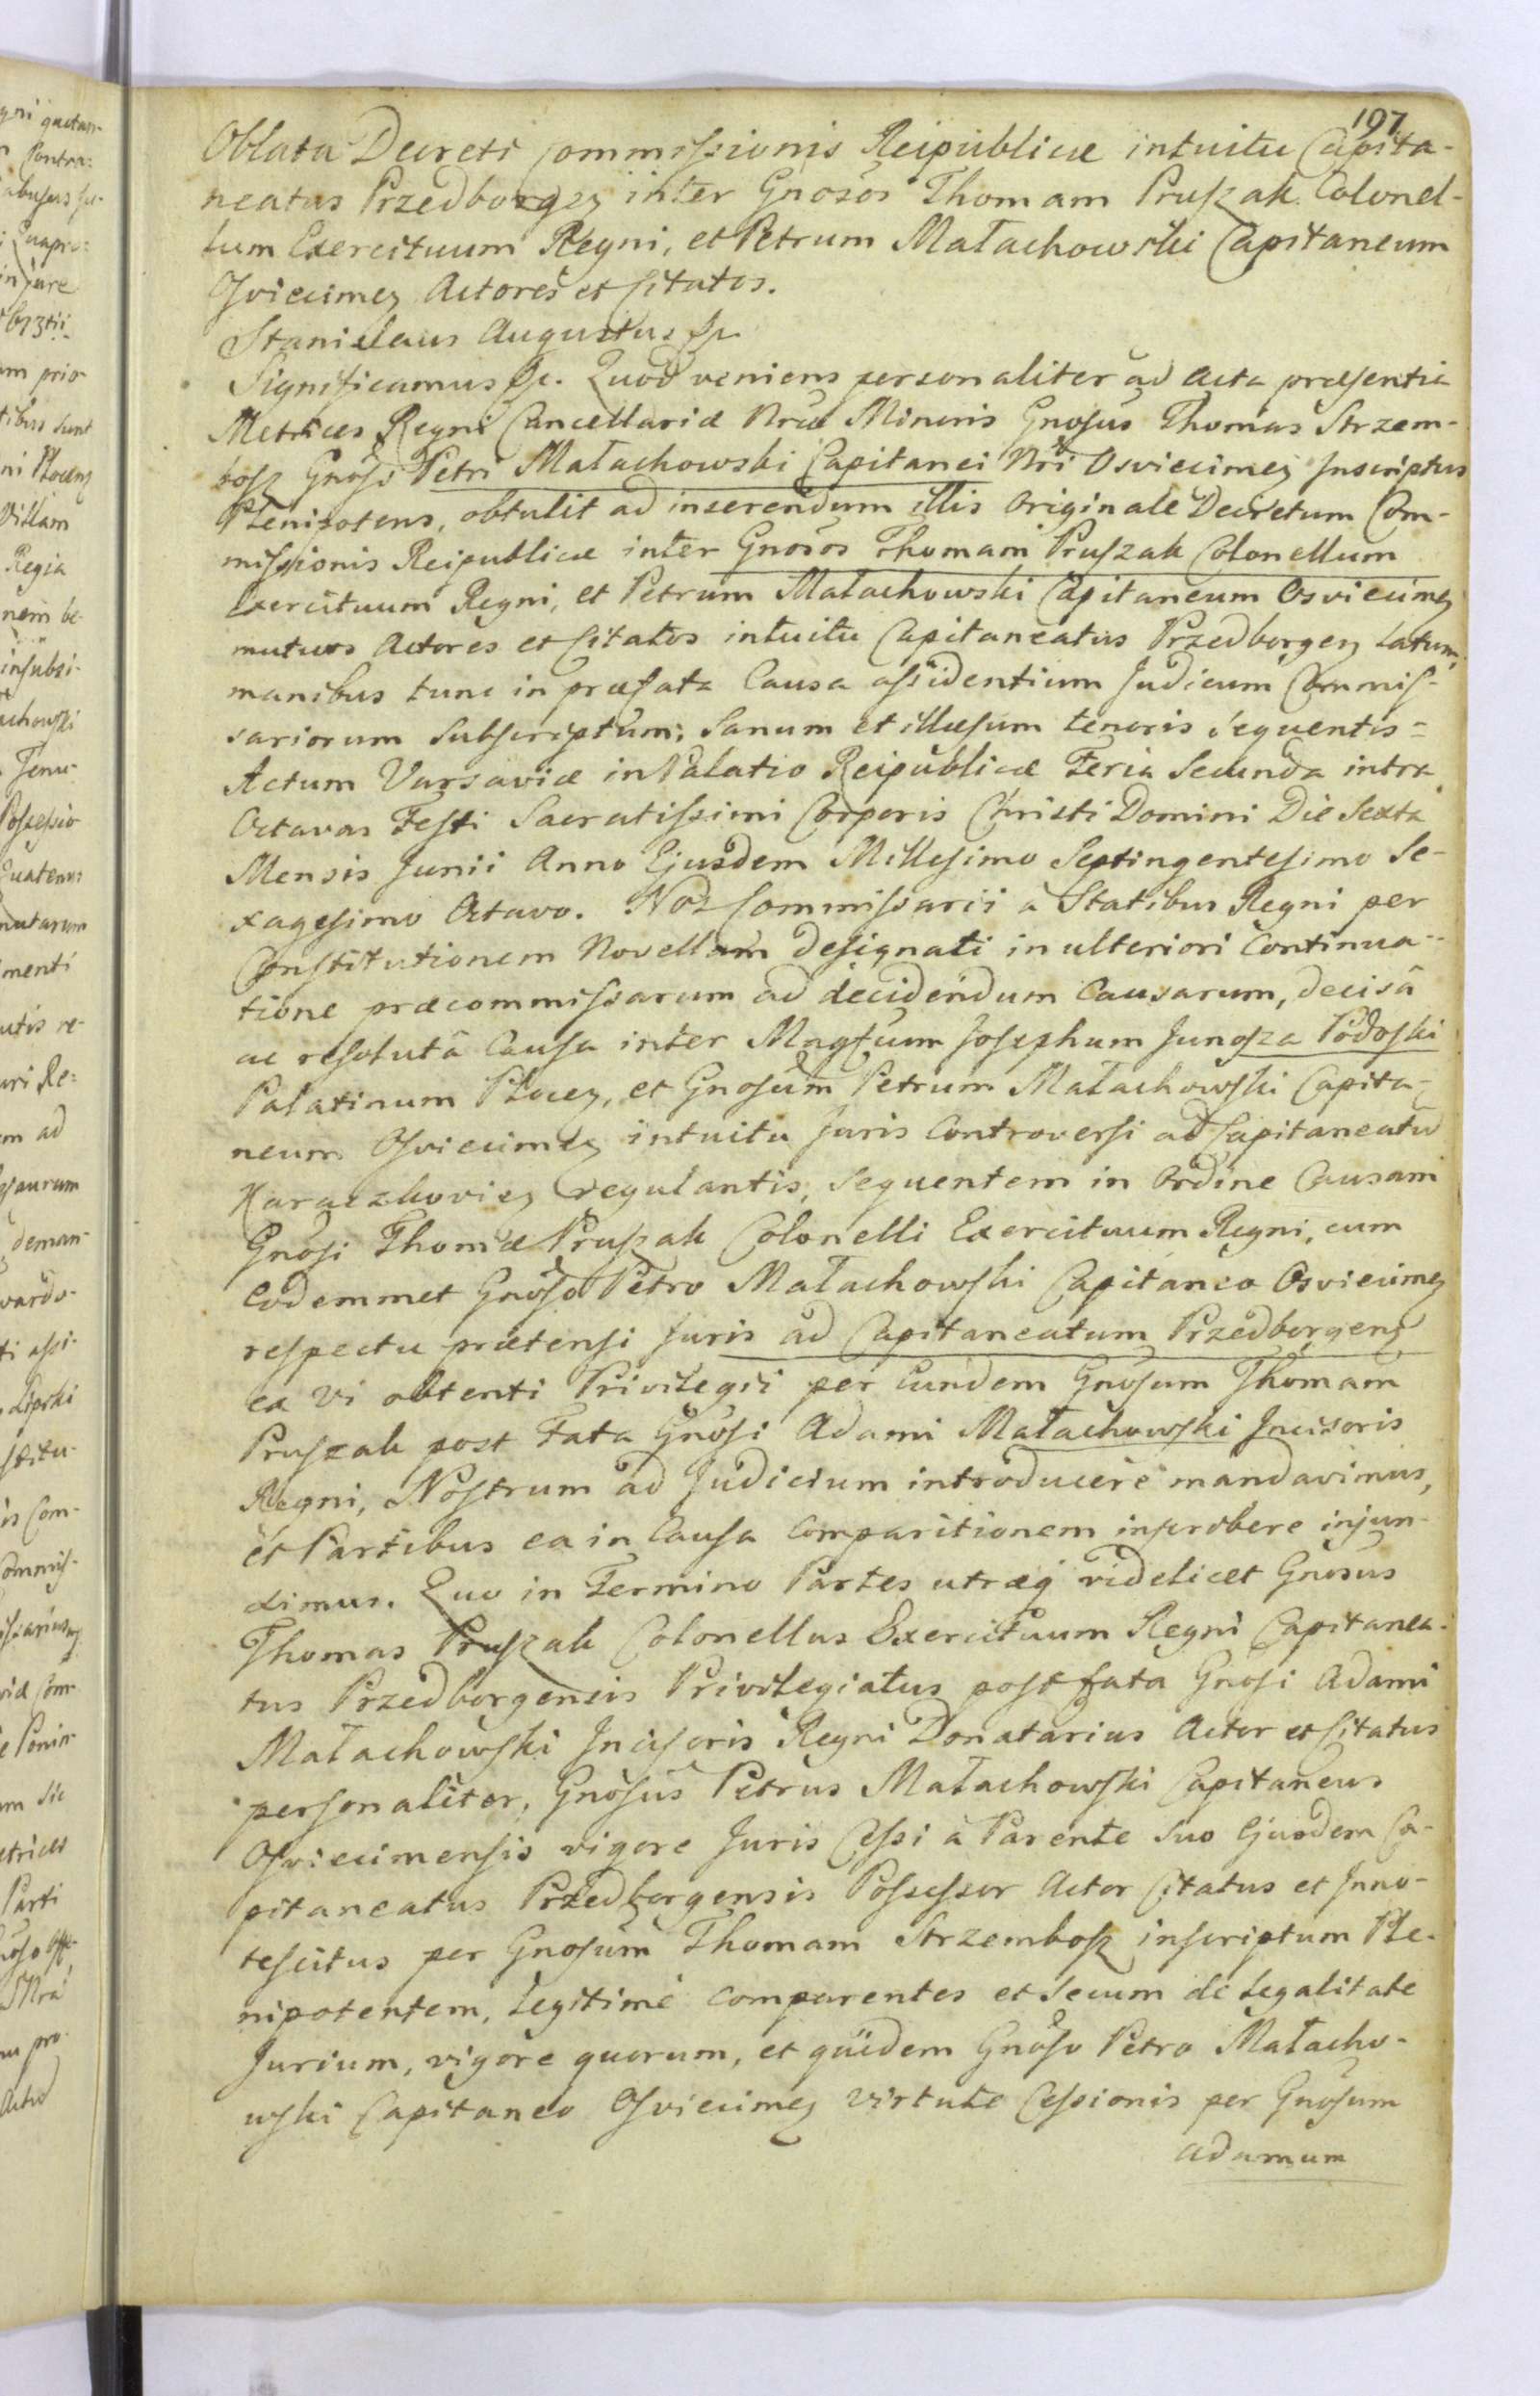 197
Oblata Decreti Commissionis Reipublicæ intuitu Capita-
neatus Przedborgen inter Gnosos Thomam Pruszak Colonel-
lum Exercituum Regni, et Petrum Małachowski Capitaneum
Osviecimen Actores et Citatos.
Stanislaus Augustus &c
Significamus &c. Quod veniens personaliter ad Acta præsentia
Metrices Regni Cancellariæ Nræ Minoris Gnosus Thomas Strzem-
bosz Gnosi Petri Małachowski Capitanei Nri Osviecimen Inscriptus
Plenipotens, obtulit ad inserendum illis Originale Decretum Com-
missionis Reipublicæ inter Gnosos Thomam Pruszak Colonellum
Exercituum Regni, et Petrum Małachowski Capitaneum Osviecimen
mutuos Actores et Citatos intuitu Capitaneatus Przedborgen Latum,
manibus tunc in præfata Causa assidentium Judicum Commis-
sariorum Subscriptum; Sanum et illæsum tenoris sequentis=
Actum Varsaviæ in Palatio Reipublicæ Feria Secunda intra
Octavas Festi Sacratissimi Corporis Christi Domini Die Sexta
Mensis Junii Anno Ejusdem Millesimo Septingentesimo Se-
xagesimo Octavo. Nos Commissarii a Statibus Regni per
Constitutionem Novellam designati in ulteriori Continua-
tione præcommissarum ad decidendum Causarum, decisâ
ac resolutâ Causa inter Magfcum Josephum Junosza Podoski
Palatinum Płocen, et Gnosum Petrum Małachowski Capita-
neum Osviecimen intuitu Juris Controversi ad Capitaneatū
Haraczkovien regulantis, sequentem in Ordine Causam
Gnosi Thomæ Pruszak Colonelli Exercituum Regni, cum
Eodemmet Gnoso Petro Małachowski Capitaneo Osviecimen
respectu prætensi Juris ad Capitaneatum Przedborgens
ex vi obtenti Privilegii per Eundem Gnosum Thomam
Pruszak post Fata Gnosi Adami Małachowski Incisoris
Regni, Nostrum ad Judicium introducere mandavimus,
et Partibus ea in Causa Comparitionem inscribere injun-
ximus. Quo in Termino Partes utræq videlicet Gnosus
Thomas Pruszak Colonellus Exercituum Regni Capitanea-
tus Przedborgensis Privilegiatus post fata Gnosi Adami
Małachowski Incisoris Regni Donatarius Actor et Citatus
personaliter, Gnosus Petrus Małachowski Capitaneus
Osviecimensis vigore Juris Cessi à Parente suo Ejusdem Ca-
pitaneatus Przedborgensis Possessor Actor Citatus et Inno-
tescitus per Gnosum Thomam Strzembosz inscriptum Ple-
nipotentem, Legitime comparentes et secum de Legalitate
Jurium, vigore quorum, et quidem Gnoso Petro Małacho-
wski Capitaneo Osviecimen virtute Cessionis per Gnosum
Adamum